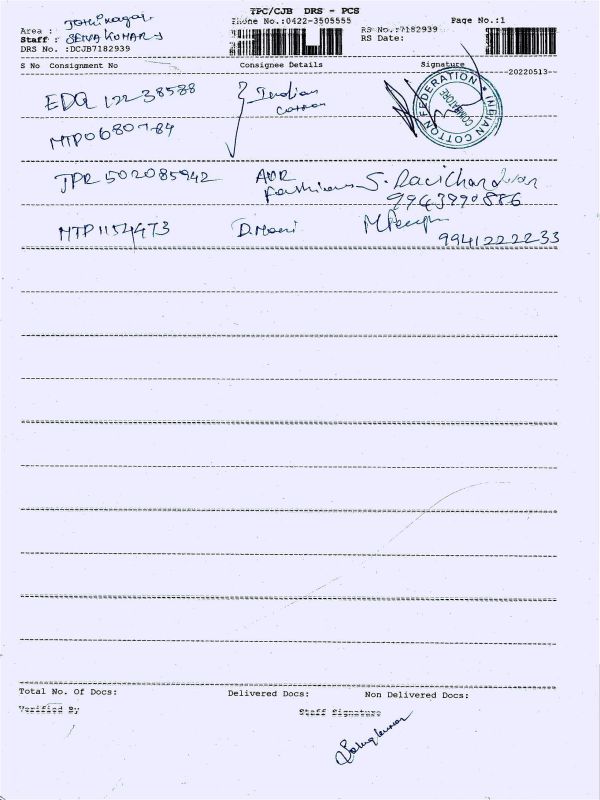 TPC/CJB DRS - PCS
Phone No.:0422-3505555 Page No.:1
Area :
Staff : SELVA KUMAR S
DRS No. :DCJB7182939
RS No.:7182939
RS Date:
S No Consignment No Consignee Details Signature
-20220513-
EDQ 12238588 Indian
Cotton
INDIAN COTTON FEDERATION
COIMBATORE
MTP0680784
JPR 502085942 AUR Fashions S. Ravichandran
9943990886
MTP1154473 D.Mani
9941222233
Total No. Of Docs: Delivered Docs: Non Delivered Docs:
Verified By Staff Signature